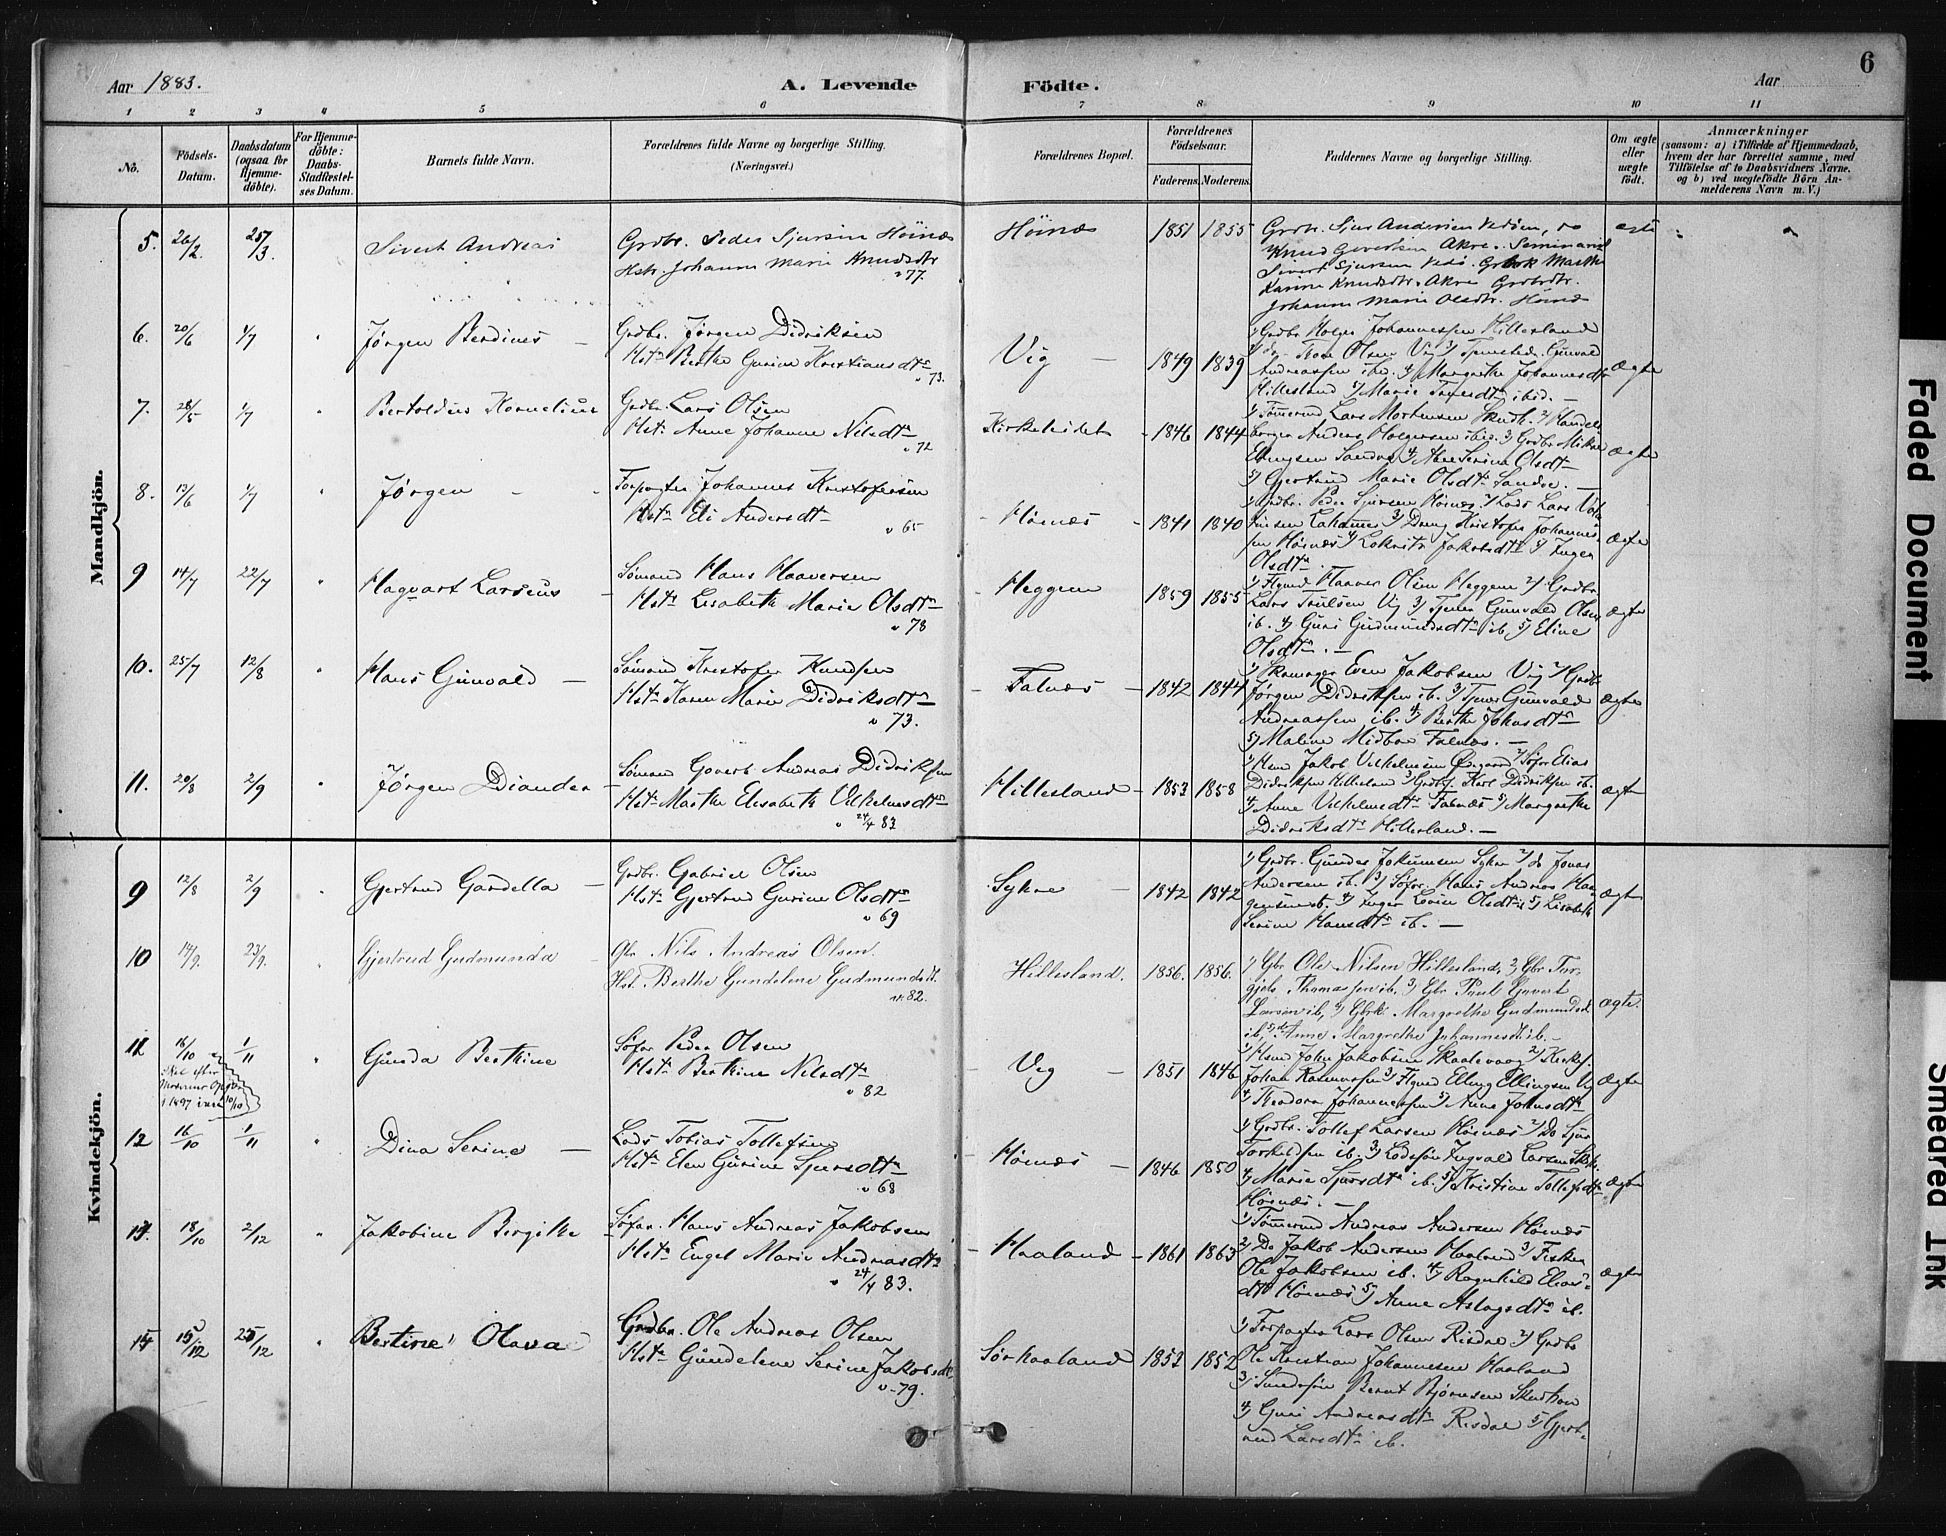 Aar 1883.
A. Levende Födte.
Aar
6
1 2 3 4 5 6 7 8 9 10 11
No.
Födsels-Datum.
Daabsdatum (ogsaa for Hjemme-döbte).
For Hjemme-döbte: Daabs-Stadfæstel-ses Datum.
Barnets fulde Navn.
Forældrenes fulde Navne og borgerlige Stilling.
(Næringsvei.)
Forældrenes Bopæl.
Forældrenes Födselsaar.
Faderens. Moderens.
Faddernes Navne og borgerlige Stilling.
Om ægte eller uægte födt.
Anmærkninger
(saasom: a) i Tilfælde af Hjemmedaab, hvem der har forrettet samme, med Tilföielse af to Daabsvidners Navne. og b) ved uægtefödte Börn An-melderens Navn m. V.)
Mandkjön.
5. 26/2. 25/3. Sivert Andreas
Grdbr. Peder Sjursen Höinæs
Hstr Johanna Marie Knudsdtr
" 77.
Höinæs 1851 1855
Grbr. Sjur Andersen Vedöen, do
Knud Govertsen Akre. Seminarist
Sivert Sjursen Vedö.
Karine Knudsdtr. Akre
Johanna Marie Olsdtr. Höinæs
6. 20/6 1/7 " Jørgen Berdines –
Grdbr. Jørgen Didriksen
Hst Berthe Gurine Kristiansdtr
" 73.
Vig – 1849 1839
1) Grdbr Holger Johannessen Hillesland
2) do Tore Olsen Vig 3) Gunvald
Andreassen ibid. 4) Margrethe Johannesdtr
Hillesland 5) Marie ibid. –
ægte
7. 28/5 1/7 " Bertoldus Kornelius
Grdbr. Lars Olsen
Hst. Anne Johanne Nilsdtr
" 72
Kirkeleidet - 1846 1844
1) Tømmermd Lars Mortensen Skudh. 2) Handels
borger Anders Holgersen ibid. 3) Grdbr Mikkel
Sandve 4) Serina Olsdtr
5) Gjertrud Marie Olsdtr Sandve. –
ægte
8. 13/6 1/7 " Jørgen –
Forpagter Johannes Kristofersen
Hst Eli Andersdtr
" 65
- Høinæs - 1841 1840
1) Grdbr. Peder Sjursen Høinæs. 2) Lods Lars
3) Dreng Kristofer Johannes-
sen Høinæs 4) Jakobsdtr 5) Inger
Olsdtr.
ægte
9 14/7 22/7 " Hagvart Larseus –
Sømand Hans Haaversen
Hst Lisabeth Marie Olsdtr
" 78
- Heggem 1859 1855
1) Haaver Olsen Heggem 2) Grdbr
Lars Trulsen Vig 3) Tjener Gunvald Olsen
ib. 4) Guri Gudmundsdtr ib. 5) Eline
Olsdtr. –
ægte
10. 25/7 12/8 " Hans Gunvald –
Sømand Kristofer Knudsen
Hst Karen Marie Didriksdtr
" 73.
- Falnæs - 1842 1844
1) Skomager Even Jakobsen Vig 2) Grdbr
Jørgen Didriksen ib. 3) Tjener Gunvald
Andreassen ib. 4) Berthe Johnsdtr
5) Malene Midbøe Falnæs. –
ægte
11. 20/8 2/9 " Jørgen Diander –
Sømand Govert Andreas Didriksen
Hst Marthe Elisabeth Vilhelmsdtr
" 24/4 83
Hillesland - 1853 1858
1) Hsmd Jakob Vilhelmsen Øigaard 2) Søfar Elias
Didriksen Hillesland 3) Grdbr. Karl Didriksen ib.
4) Anne Vilhelmsdtr Falnæs 5) Margrethe
Didriksdtr Hillesland. –
ægte
Kvindekjön.
9 12/8 2/9 " Gjertrud Gardella –
Grdbr. Gabriel Olsen
Hst. Gjertrud Gurine Olsdtr
" 69
- Syhre – 1842 1842
1) Grdbr. Gundes Jokumsen Syhre 2) do Jonas
Andersen ib. 3) Søfar. Hans Andreas Haa-
gensen ib. 4) Inger Olsdtr ib 5) Lisabeth
Serine Hansdtr ib. –
ægte
10 14/9. 23/9. " Gjertrud Gudmunda –
Gbr. Nils Andreas Olsen.
Hst. Berthe Gundelene Gudmundsdt.
v. 82.
Hillesland. 1856. 1856.
1) Gbr Ole Nilsen Hillesland, 2) Gbr Tor-
gjels Thomassen ib. 3) Gbr Poul Govert
Larsen ib. 4) Gbrk. Margrethe Gudmundsd.
ib, 5) Anne Margrethe Johannesdt ib. –
ægte.
11 16/10 1/11 " Gunda Berthine
Skal efter
Moderens Opgave
i 1897 være 10/10
Søfar Peder Olsen
Hst. Berthine Nilsdtr
" 82
- Veg - 1851 1846
1) Hsmd John Jakobsen Skaalevaag 2) Kirkes.
Johan Rasmussen 3) Elling Ellingsen Vig
4) Teodora Johannessen 5) Anne Johnsdtr
ægte
12 16/10 1/11 " Dina Serine –
Lods Tobias Tollefsen
Hst Elen Gurine Sjursdtr
" 68
- Høinæs – 1846 1850
1) Grdbr. Tollef Larsen Høinæs 2) Do Sjur
Torkildsen ib. 3) Lodssøn Ingvald Larsen
4) Marie Sjursdtr ib. 5) Kristine Tollefsdtr
Høinæs. –
ægte
14. 18/10 2/12 " Jakobine Birgithe –
Søfar. Hans Andreas Jakobsen
Hst. Engel Marie Andreasdtr
" 24/4 83.
- Haaland - 1861 1863
1) Tømmermd Andreas Andersen Høinæs
2) Do Jakob Andersen Haaland 3) Fisker
Ole Jakobsen ib. 4) Ragnhild Elias-
dtr Høinæs 5) Anne Aslagsdtr ib.
ægte
15 15/12 25/12 " Bertine Olava
Grdbr. Ole Andreas Olsen
Hst Gundelene Serine Jakobsdtr
" 79.
Sørhaaland 1853 1852
1) Forpagter Lars Olsen Risdal 2) Grdbr
Ole Kristian Johannesen Haaland
3) Smedesøn Bernt Bjørnsen Skudhavn
4) Guri Andreasdtr Risdal 5) Gjert-
rud Larsdtr ib.
Faded Document
Smeared Ink